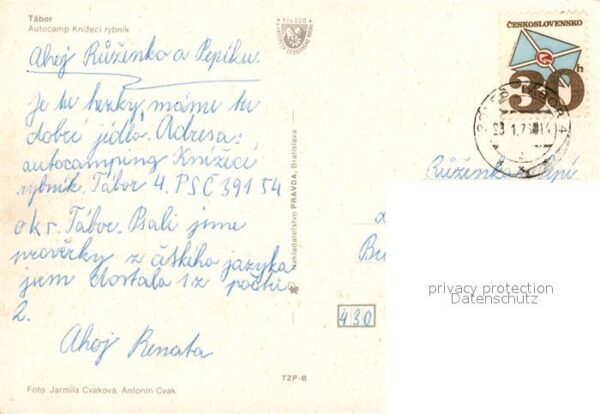 Tábor
Autocamp Knížecí rybník
Ahoj Růženko a Pepíku.
Je tu hezky, máme tu
dobré jídlo. Adresa:
autocamping Knížecí
rybník, Tábor 4. PSČ 391 54
okr. Tábor. Psali jsme
prověrky z českího jazyka
jsem dostala 1 z počtů
2.
Ahoj Renata
Foto Jarmila Cvaková, Antonín Cvak
Nakladatelstvo PRAVDA, Bratislava
TZP-B
430
ČESKOSLOVENSKO
30h
TÁBOR 4
Růženka
privacy protection
Datenschutz